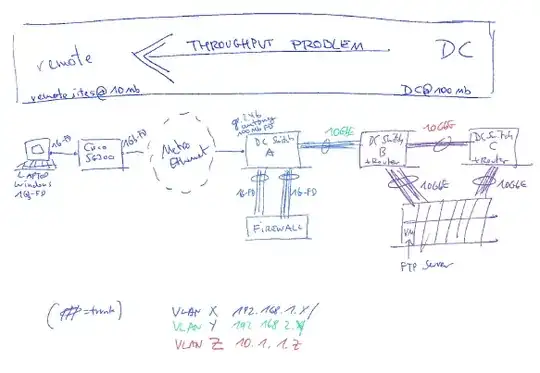 remote
THROUGHPUT PROBLEM
DC
remote sites @ 10 mb
DC @ 100 mb
LAPTOP
windows
1G-FD
Cisco
Metro
Ethernet
100mb FD
DC Switch
A
1G-FD
1G-FD
FIREWALL
10GbE
DC Switch
B
+Router
10GbE
DC Switch
C
+Router
10GbE
10GbE
VM
FTP Server
( = trunk)
VLAN X 192.168.1.x/
VLAN Y 192 168 2.x/
VLAN Z 10.1.1.z